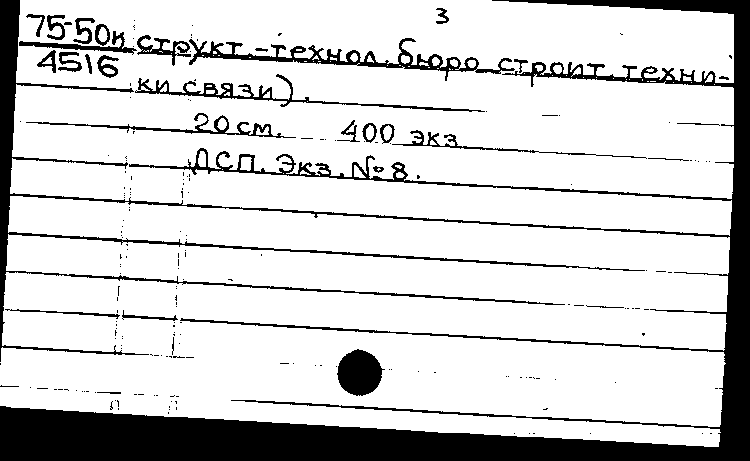 3
75-50н структ.-технол. бюро строит. техни-
4516 ки связи).
20 см. 400 экз.
ДСП. Экз. № 8.